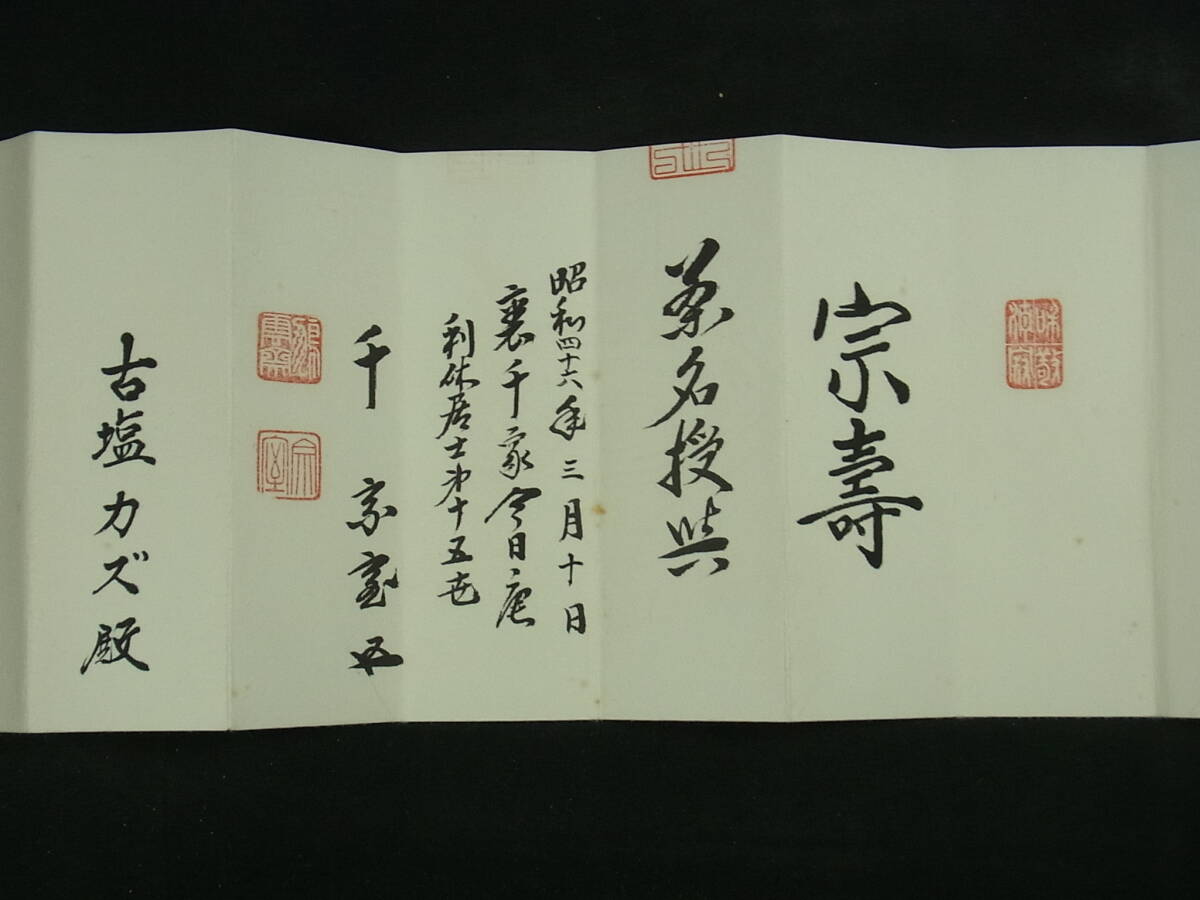 和敬
清寂
宗壽
茶名授与
昭和四十六年三月十日
裏千家今日庵
利休居士第十五世
千 宗室
宗室
古塩カズ殿